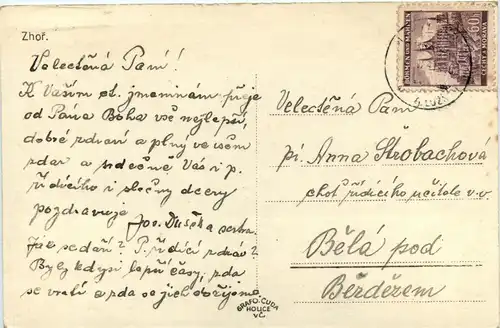 Zhoř.
Velectěná Paní!
K Vašim ct. jmeninám přeje
od Pána Boha vše nejlepší,
dobré zdraví a plný ve všem
zdar a srdečně Vás i p.
řídícího i slečny dcery
pozdravuje
Jos. Dušek a
Jak se daří? P. řídící zdráv?
Byly kdysi lepší časy, zda
se vrátí a zda se jich dožijeme
BÖHMEN UND MÄHREN
60h
ČECHY A MORAVA
Velectěná Paní
pí. Anna Štrobachová
choť řídícího učitele v.v.
Bělá pod
Bezdězem
GRAFO ČUDA
HOLICE
V Č.